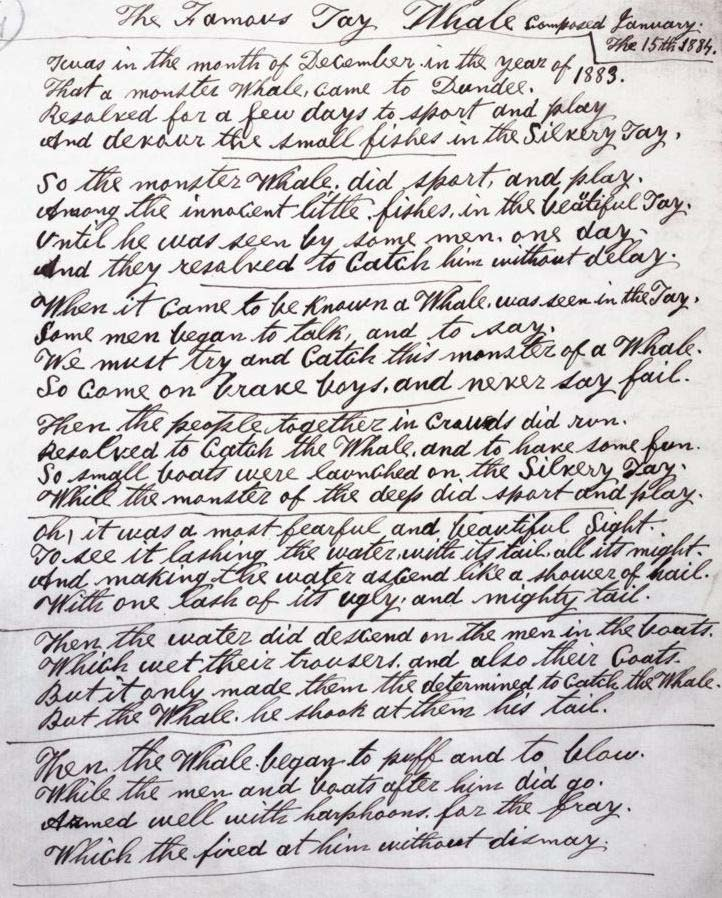 The Famous Tay Whale Composed January.
The 15th 1884.
Twas in the month of December in the year of 1883.
That a monster Whale, came to Dundee.
Resolved for a few days to sport and play
And devour the small fishes in the Silvery Tay.
So the monster Whale, did sport, and play.
Among the innocent little fishes, in the beätiful Tay.
Until he was seen by some men, one day.
And they resolved to Catch him without delay.
When it Came to be Known a Whale, was seen in the Tay.
Some men began to talk, and to say.
We must try and Catch this monster of a Whale.
So Come on brave boys, and never say fail.
Then the people, together in Crowds did run.
Resolved to Catch the Whale, and to have some fun.
So small boats were launched on the Silvery Tay.
While the monster of the deep did sport and play.
oh, it was a most fearful and beautiful Sight.
To see it lashing the water, with its tail, all its might.
And making the water ascend like a shower of hail.
With one lash of its ugly and mighty tail.
Then the water did descend on the men in the boats.
Which wet their trousers, and also their Coats.
But it only made them the determined to Catch the Whale.
But the Whale, he shook at them his tail.
Then the Whale began to puff and to blow.
While the men and boats after him did go.
Armed well with harphoons, for the fray.
Which the fired at him without dismay.